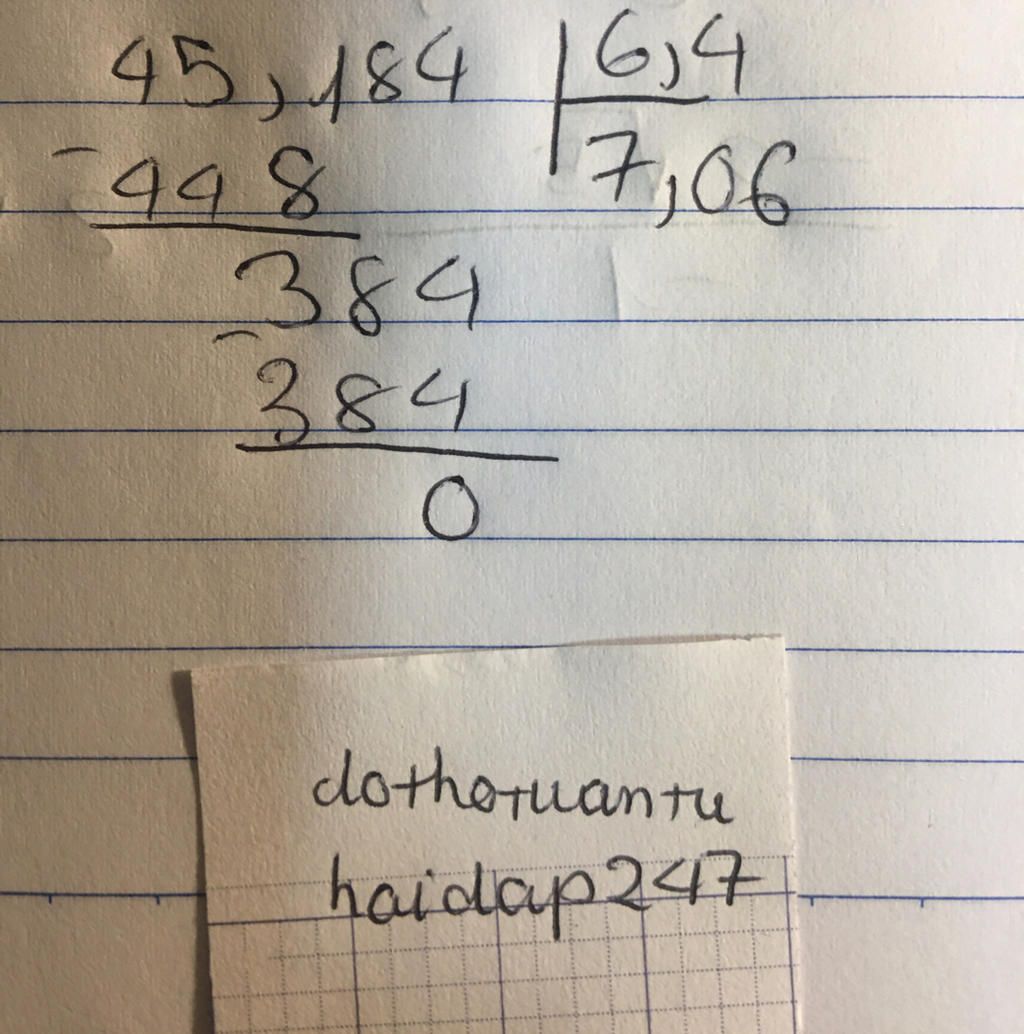 45,184 6,4
- 448 7,06
384
- 384
0
dothotuantu
haidap247